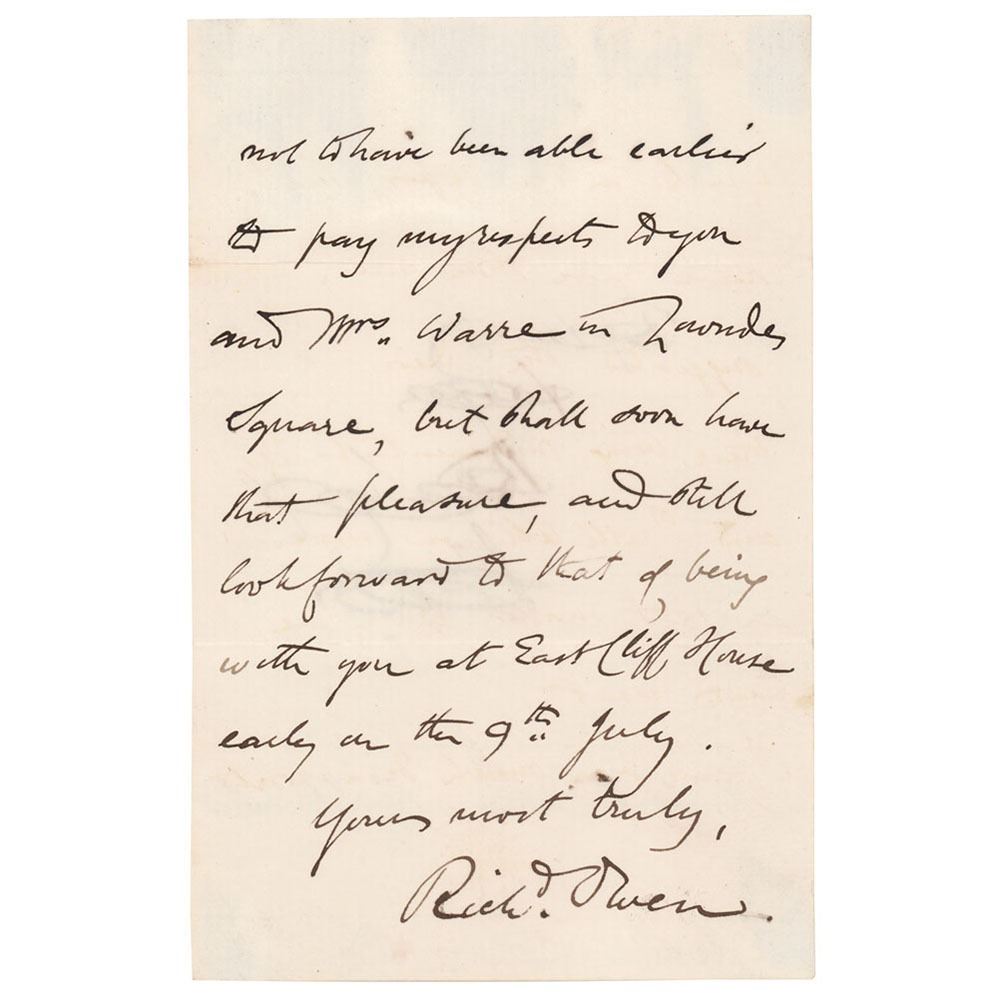 not to have been able earlier
to pay my respects to you
and Mrs. Warre in Lowndes
Square, but shall soon have
that pleasure, and still
look forward to that of being
with you at East Cliff House
early on the 9th July.
Yours most truly,
Richd. Owen.